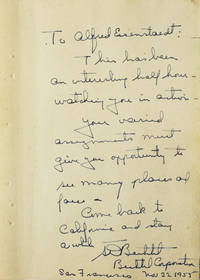 To Alfred Eisenstaedt:
This has been
an interesting half hour -
watching you in action -
Your varied
assignments must
give you opportunity to
see many places and
faces -
Come back to
California and stay
awhile
SD Bechtel
Bechtel Corporation
San Francisco Nov 22 1955